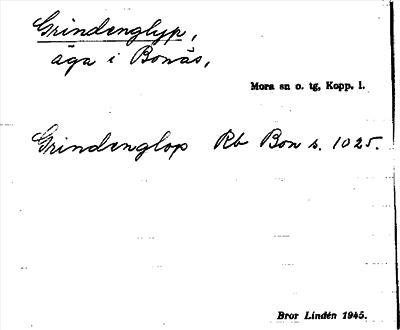 Grindenglyp,
äga i Bonäs,
Mora sn o. tg, Kopp. l.
Grindenglop Rb Bon s. 1025.
Bror Lindén 1945.